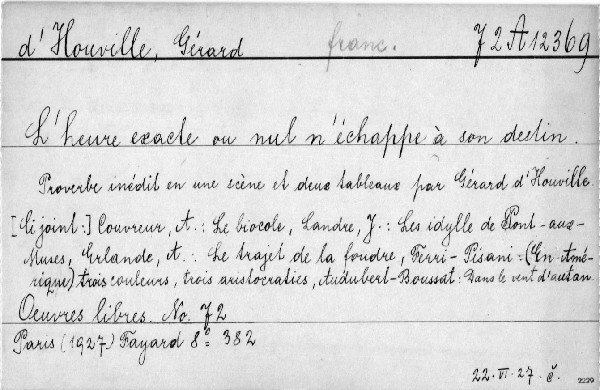 d'Houville, Gérard franc. J 2 A 12369
L'heure exacte ou nul n'échappe à son destin.
Proverbe inédit en une scène et deux tableaux par Gérard d'Houville.
[Ci joint:] Couvreur, A.: Le biocole, Landre, J.: Les idylle de Pont-aux-
Muses, Erlande, A.: Le trajet de la foudre, Ferri-Pisani: (En Amé-
rique) trois couleurs, trois aristocraties, Audubert-Boussat: Dans le vent d'autan.
Oeuvres libres. No. 72
Paris (1927) Fayard 8° 382
22. VI. 27. č. 2229